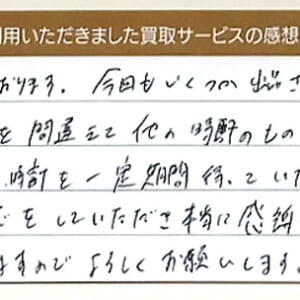 用いただきました買取サービスの感想
おります。今回もいくつか出さ
を間違えて他の時計のもの
時計を一定期間待っていた
をしていただき本当に感謝
ますのでよろしくお願いします。